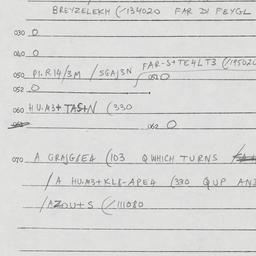 BREYZELEKH (/134020 FAR DI FEYGL
030 0
040 0
050 P1.R14/3M / SGAJ3N FAR-S+TE4LT3 (/195020
052 0
060 HU.A3++ TAStN (330
062 0
070 A GRAJG8E4 (103 QWHICH TURNS
/A HU.A3++KL8-APE4 (330 QUP AND
/AZOU+S (/111080